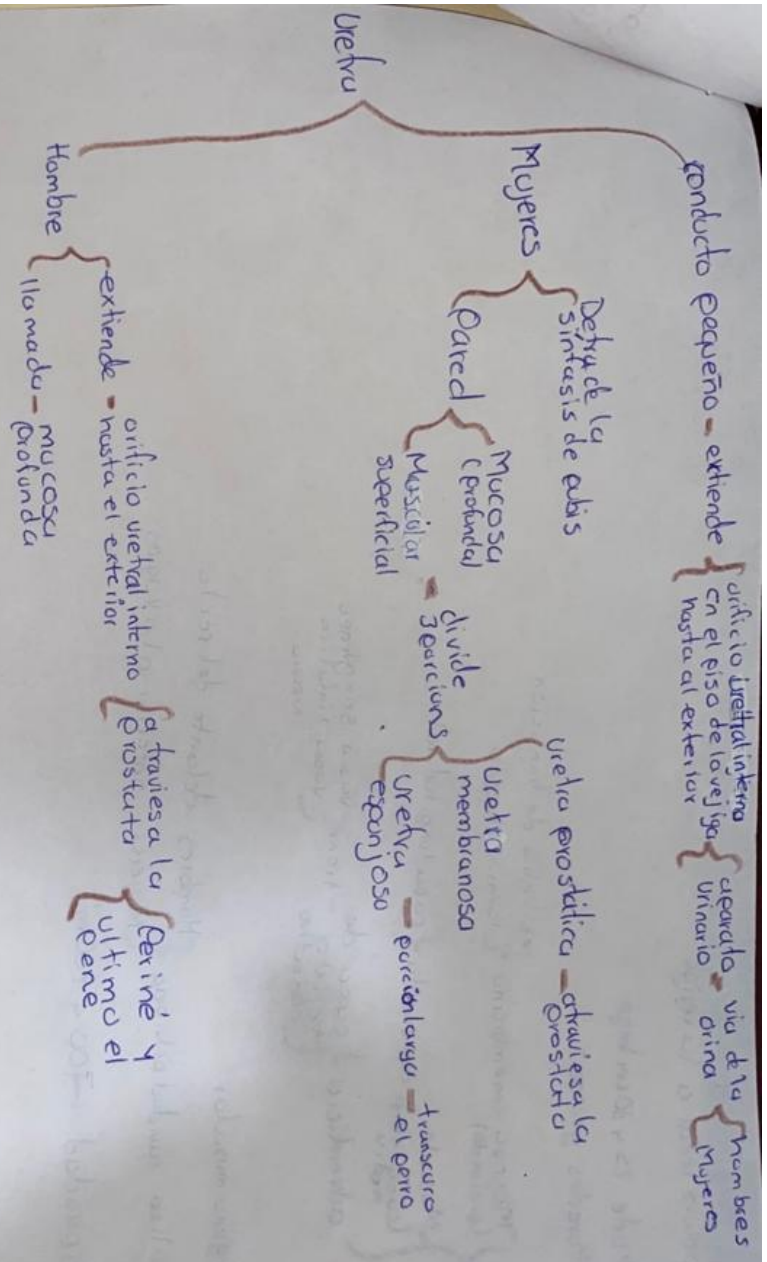 Uretra
conducto pequeño - extiende
orificio uretral interno
en el piso de la vejiga
hasta al exterior
aparato - via de la
urinario orina
hombres
Mujeres
Mujeres
Detra de la
sinfasis de pubis
Pared
Mucosa
(profunda)
Muscular -
superficial
divide
3 parcions
uretra prostática - atraviesa la
prostata
uretra
membranosa
uretra - parción larga - transcuro
esponjosa el perro
Hombre
extiende - orificio uretral interno
hasta el exterior
atraviesa la
prostata
Periné y
ultimo el
pene
llamada - mucosa
profunda